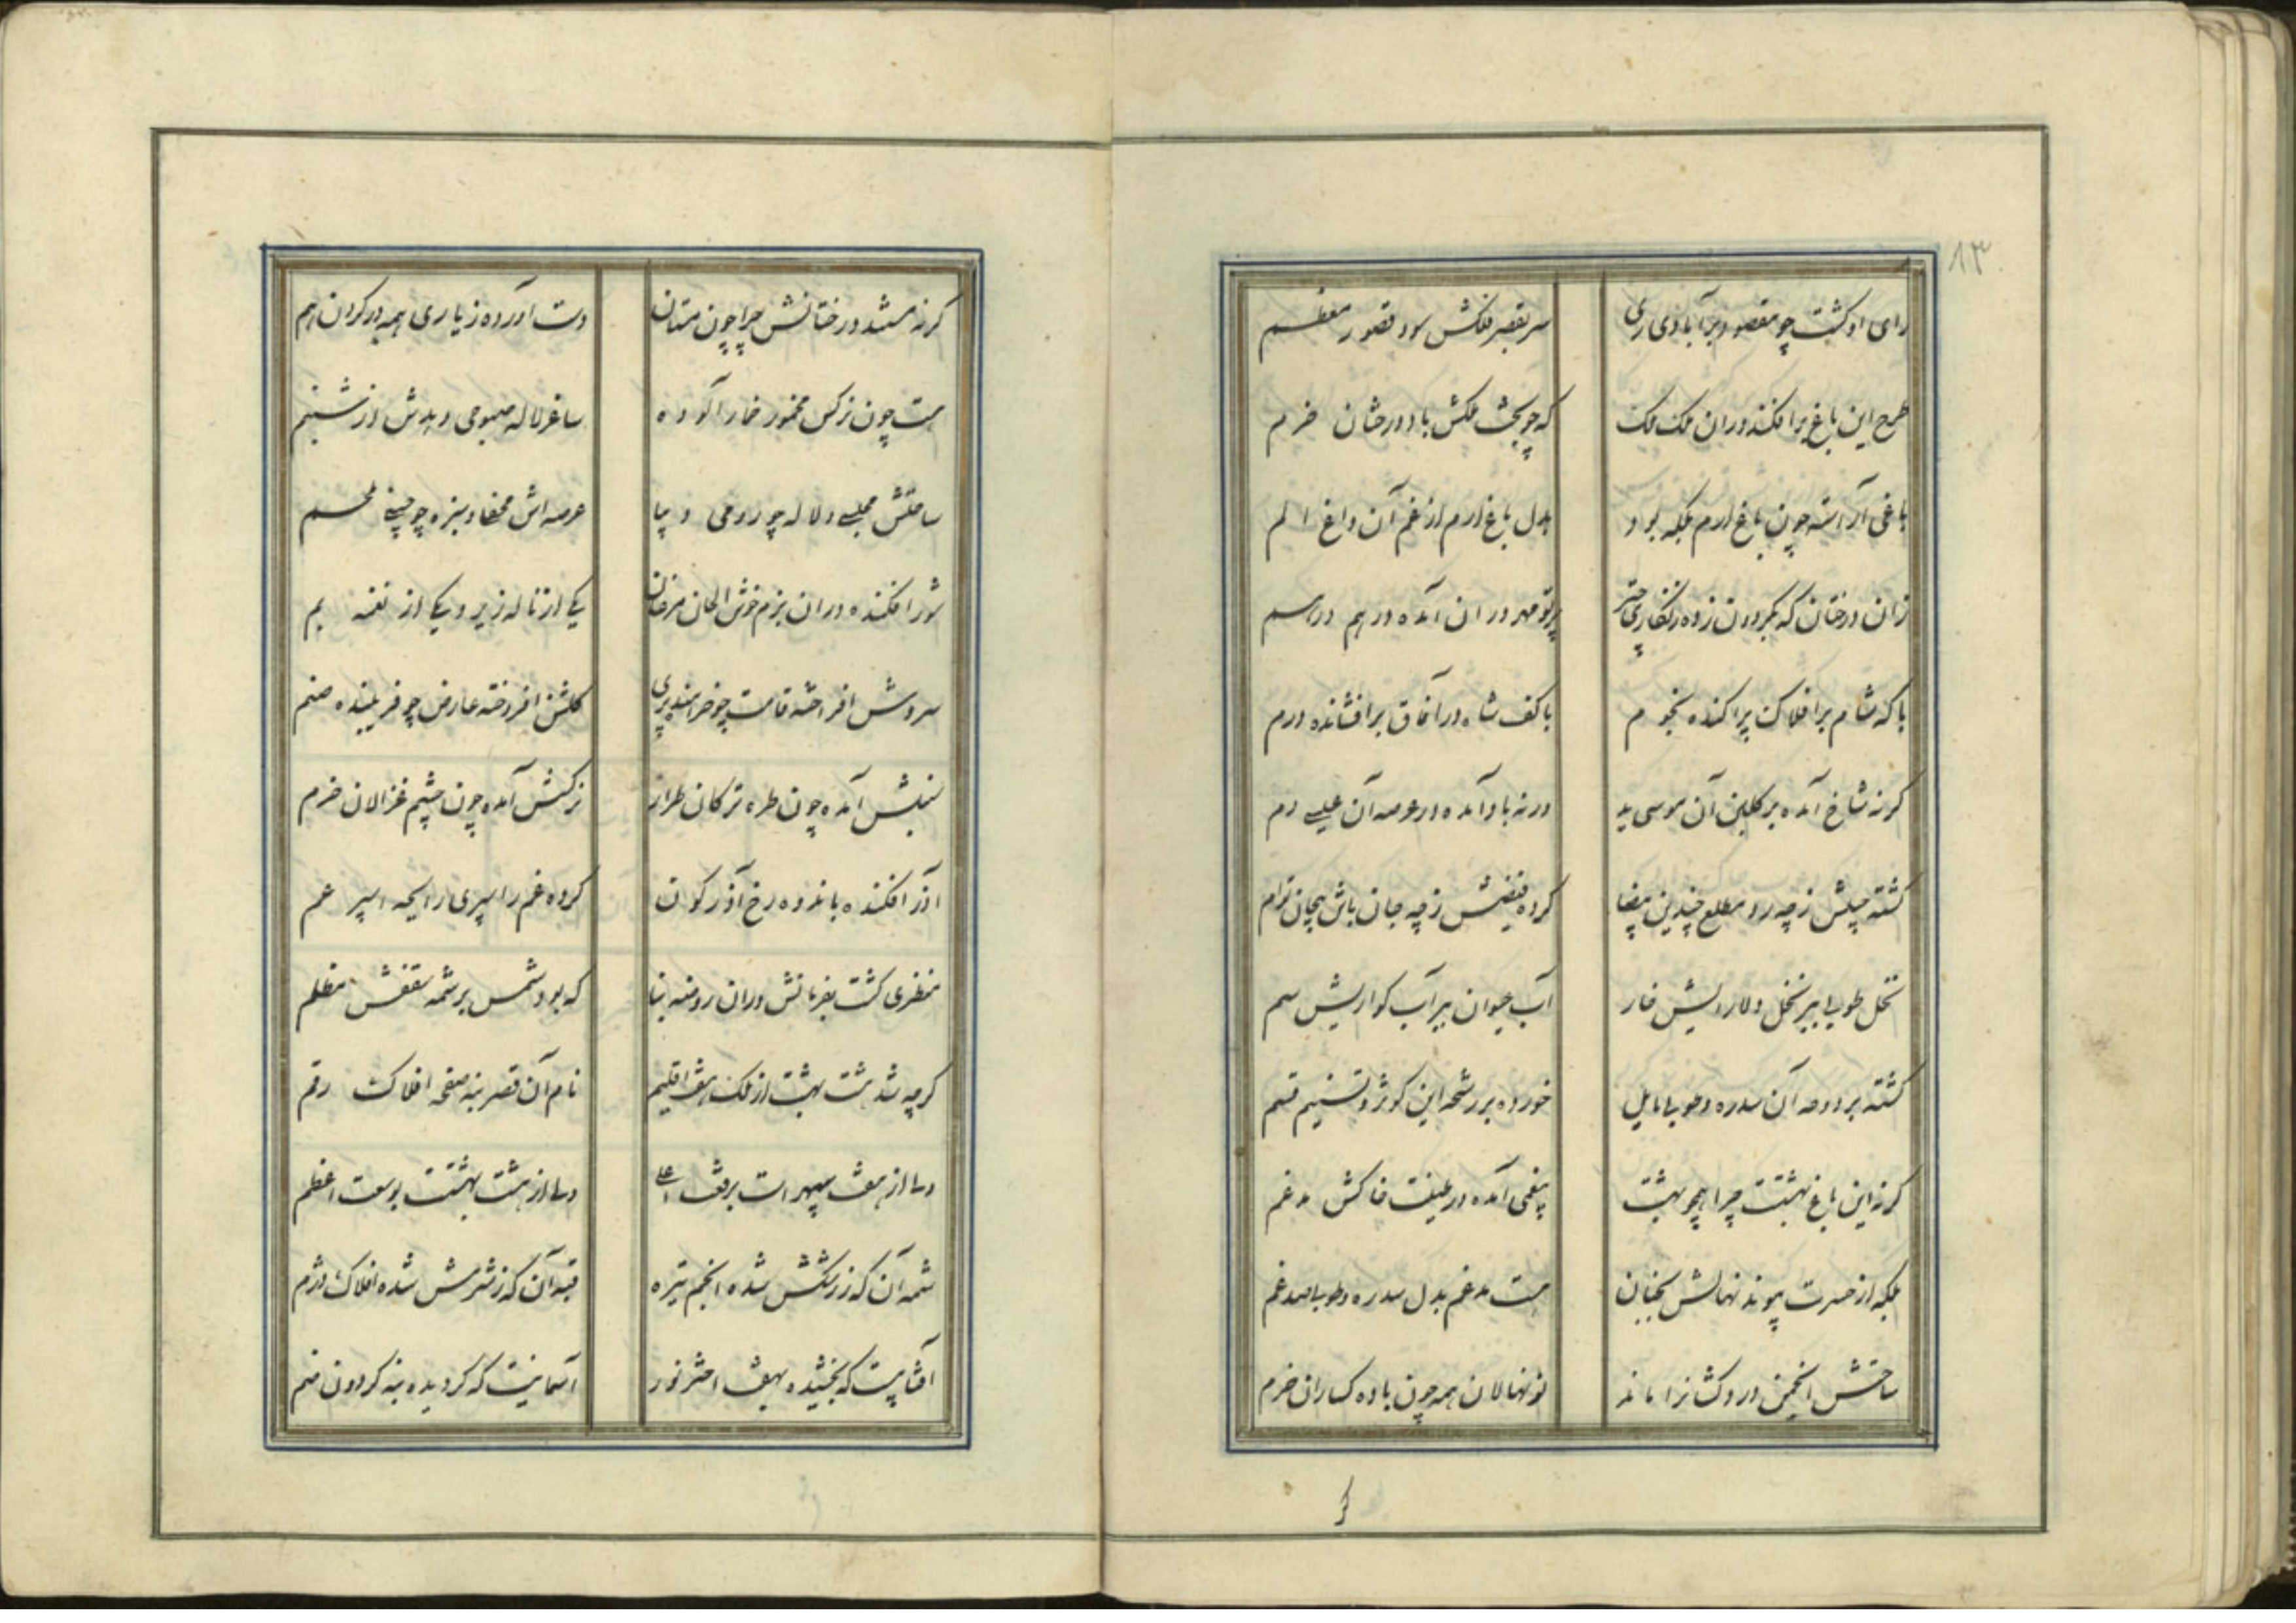 ۸۳
رای او گشت چو مقصود بر آبادی ری
سر بقصر فلکش سود قصور معظم
طرح این باغ برافکند دران ملک ملک
که چو بخت ملکش باد درختان خرم
باغی آراسته چون باغ ارم بلکه بود
بدل باغ ارم از غم آن داغ الم
زان درختان که بگردون زده زنگاری چتر
پرتو مهر دران آمده درهم درهم
یا که شام بر افلاک پراکنده نجوم
یا کف شاه در آفاق برافشانده درم
گرنه شاخ آمده بر گلبن آن موسی ید
ورنه باد آمده در عرصه آن عیسی دم
گشته جیبش ز چه رو مطلع چندین بیضا
کرده فیضش ز چه جان باش بیجان توام
نخل طوبی ببر نخل دلارایش خار
آب حیوان ببر آب گوارایش سم
گشته بر دوحه آن سدره و طوبی مایل
خورده بر رشحه این کوثر و تسنیم قسم
گرنه این باغ بهشتست چرا همچو بهشت
بیغمی آمده در طینت خاکش مدغم
بلکه از حسرت پیوند نهالش بجنان
هست مدغم بدل سدره و طوبی صد غم
ساحتش انجمن دردکشانرا ماند
نونهالان همه چون باده کساران خرم
گر
گرنه مستند درختانش چرا چون مستان
دست آورده ز یاری همه در گردن هم
مست چون نرکس مخمور خمار آلوده
ساغر لاله صبوحی دهدش از شبنم
ساحتش مجلس و لاله چو رومی دیبا
عرصه اش محفل و سبزه چو چینی ملحم
شور افکنده دران بزم خوش الحان مرغان
یکی از ناله زیر و یکی از نغمه بم
سروش افراخته قامت چو خرامنده پری
گلش افروخته عارض چو فریبنده صنم
سنبلش آمده چون طره ترکان طراز
نرکسش آمده چون چشم غزالان حرم
آذر افکنده باندوه رخ آذرگون
کرده غم را سپری رایحه اسپرغم
منظری گشت بفرمانش دران روضه بنا
که بود شمس بر شمسه سقفش مظلم
گرچه شد هشت بهشت از ملک هفت اقلیم
نام آن قصر بنه صفحه افلاک رقم
دساز هفت سپهر است برفعت اعلی
دساز هشت بهشتست بوسعت اعظم
شمسه آن که ز رشکش شده انجم تیره
قبه آن که ز شرمش شده افلاک دژم
آفتابیست که بخشیده بهفت اختر نور
آسمانیست که گردیده بنه گردون ضم